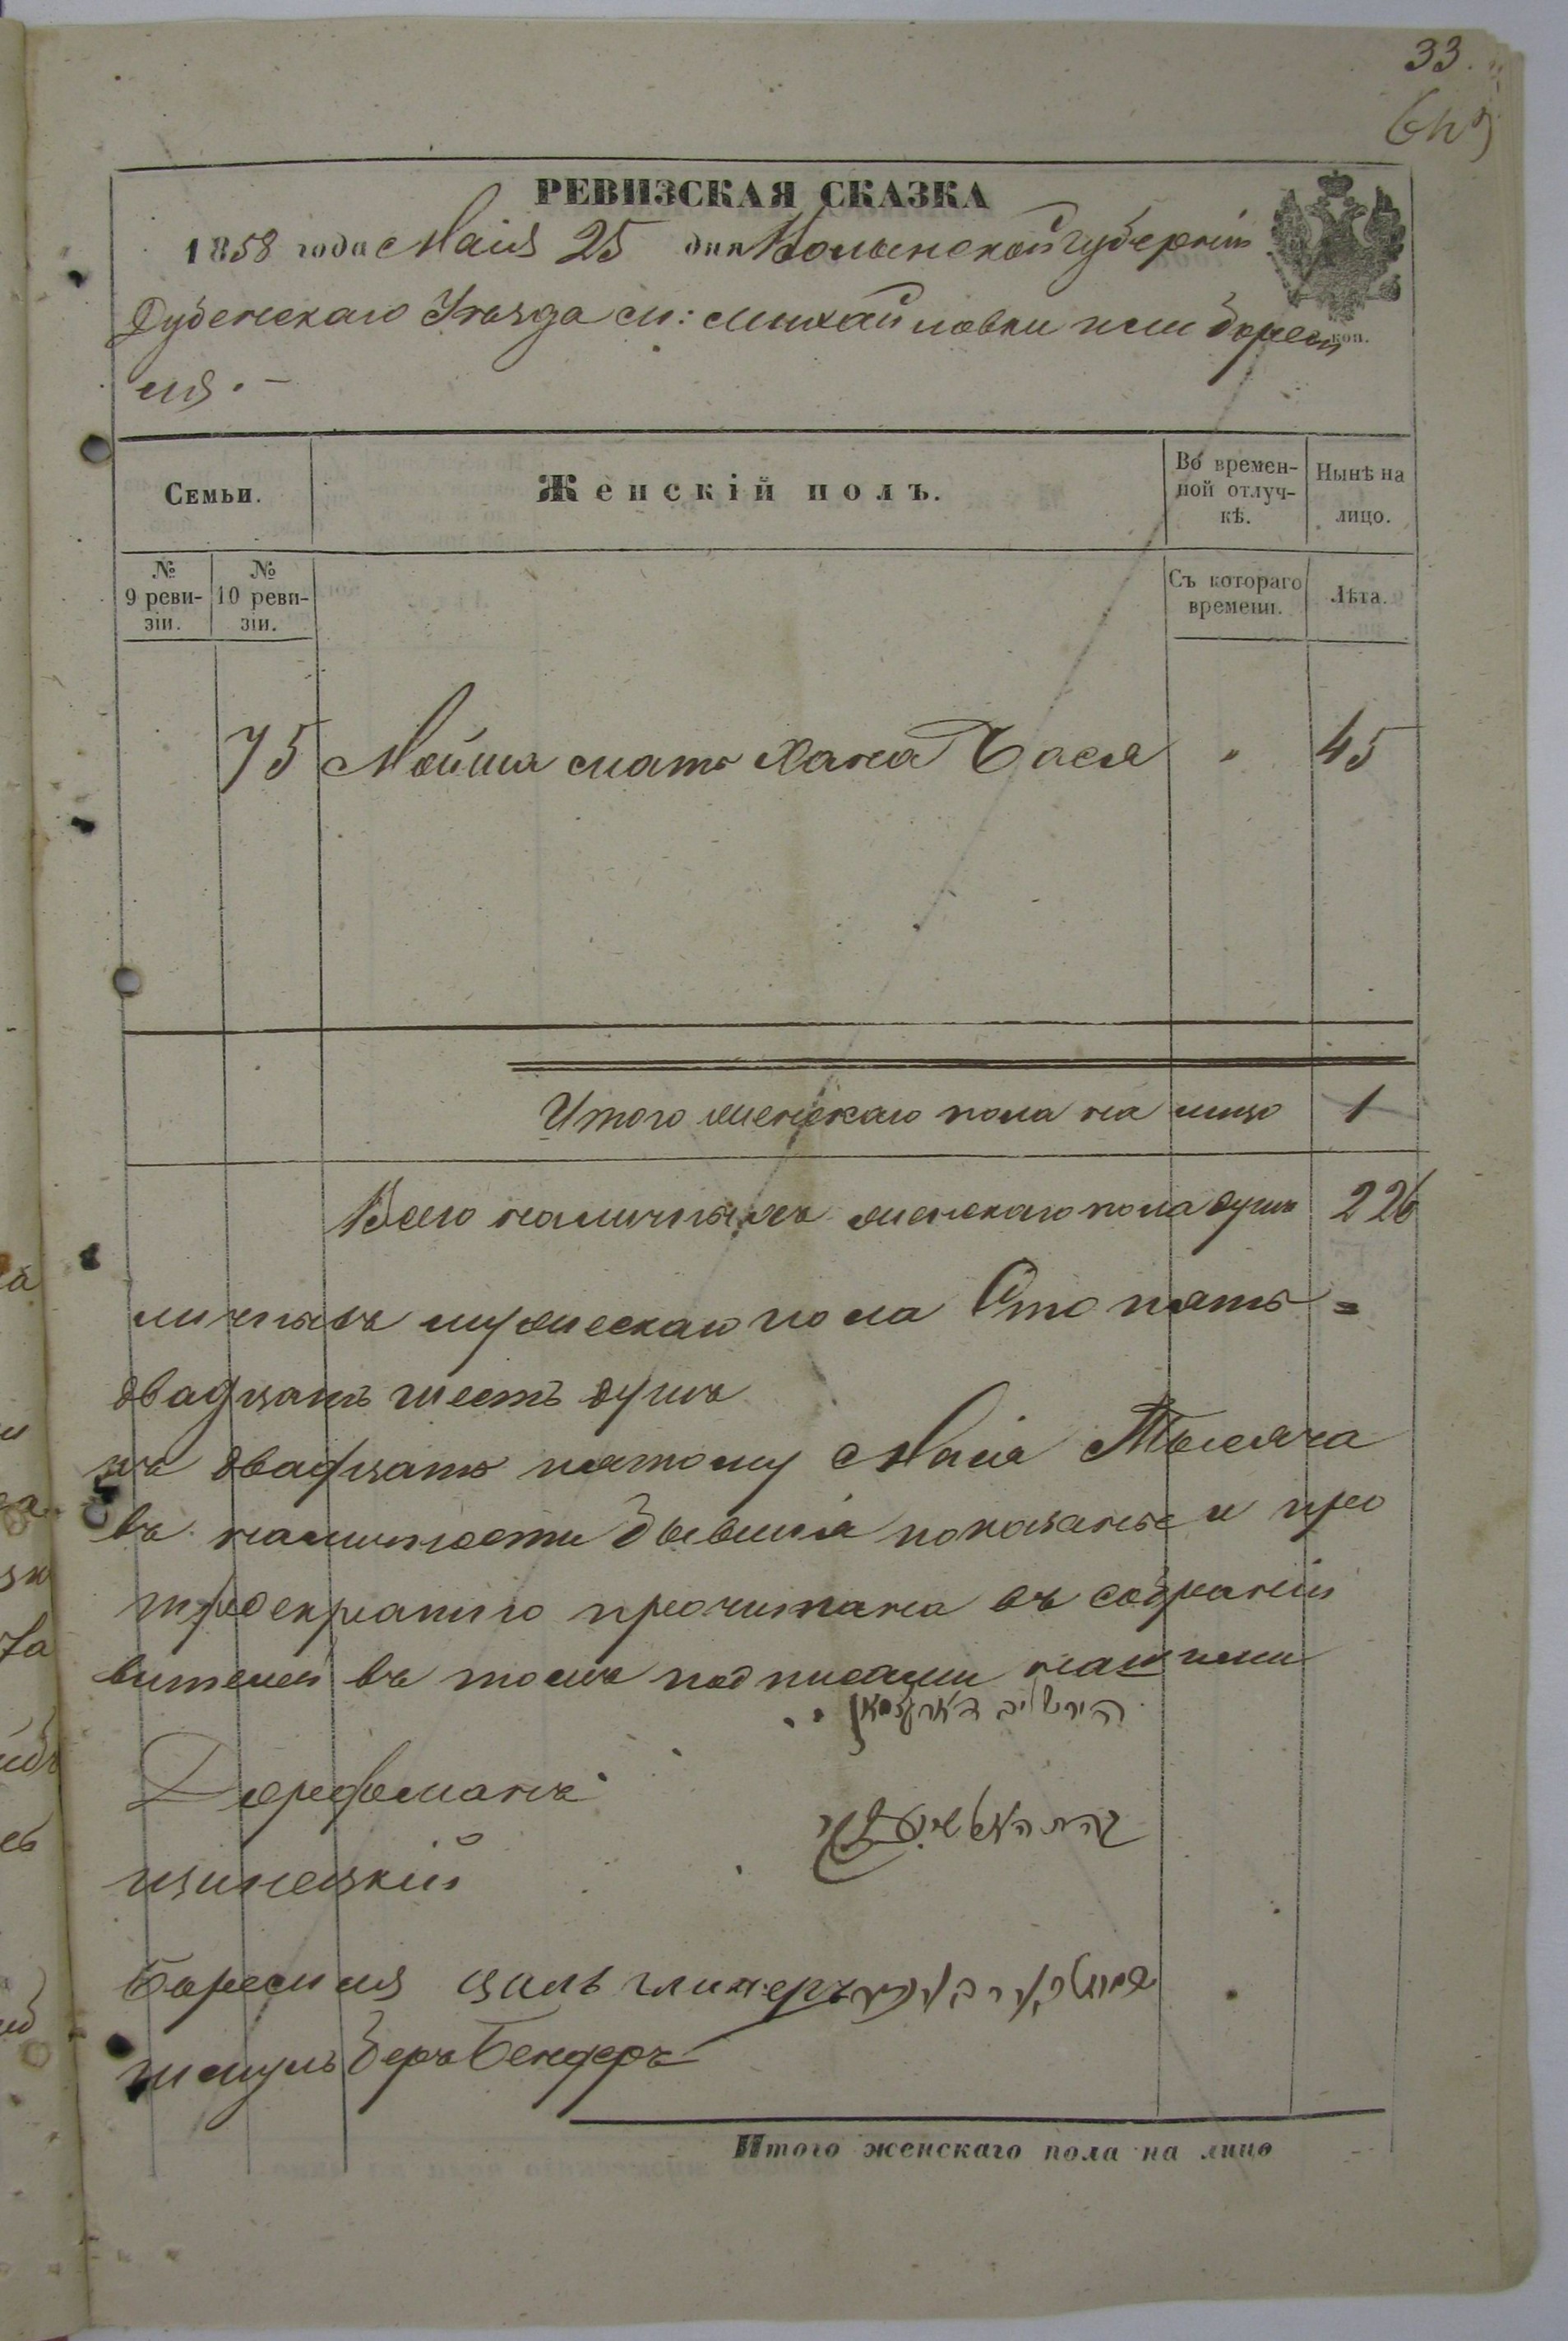 33.
РЕВИЗСКАЯ СКАЗКА
1858 года Маія 25 дня Волынской губерніи
Дубенскаго Уѣзда м: Михайловки или Берест
коп.
Семьи.
Женскій полъ.
Во времен-
ной отлуч-
кѣ.
Нынѣ на
лицо.
№
9 реви-
зіи.
№
10 реви-
зіи.
Съ котораго
времени.
Лѣта.
75 Мойша мать Хана Бася " 45
Итого женскаго пола на лицо 1
Всего наличныхъ женскаго пола душъ 226
личныхъ мужескаго пола Сто пять=
двадцать шесть душъ
къ двадцать пятому Маія Тысяча
въ наличности бывшія показаны и про
троекратно прочитана въ собраніи
вителей въ томъ подписами нашими
Дорфманъ
шмуль Беръ Бендеръ
Итого женскаго пола на лицо